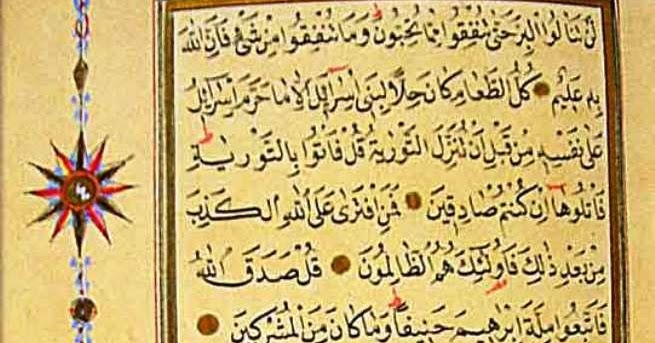 لَنْ تَنَالُوا الْبِرَّ حَتَّى تُنْفِقُوا مِمَّا تُحِبُّونَ وَمَا تُنْفِقُوا مِنْ شَيْءٍ فَإِنَّ اللّٰهَ
بِهِ عَلِيمٌ كُلُّ الطَّعَامِ كَانَ حِلًّا لِبَنِي اِسْرَائِلَ اِلَّا مَا حَرَّمَ اِسْرَائِلُ
عَلَى نَفْسِهِ مِنْ قَبْلِ اَنْ تُنَزَّلَ التَّوْرٰيةُ قُلْ فَاْتُوا بِالتَّوْرٰيةِ
فَاتْلُوهَا اِنْ كُنْتُمْ صَادِقِينَ فَمَنِ افْتَرَى عَلَى اللّٰهِ الْكَذِبَ
مِنْ بَعْدِ ذٰلِكَ فَاُولٰئِكَ هُمُ الظَّالِمُونَ قُلْ صَدَقَ اللّٰهُ
فَاتَّبِعُوا مِلَّةَ اِبْرٰهِيمَ حَنِيفًا وَمَا كَانَ مِنَ الْمُشْرِكِينَ